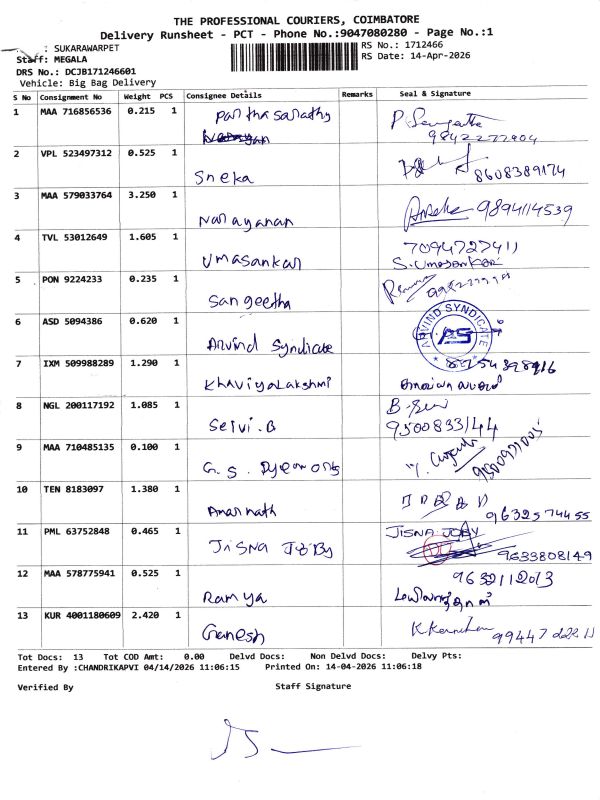 THE PROFESSIONAL COURIERS, COIMBATORE
Delivery Runsheet - PCT - Phone No.:9047080280 - Page No.:1
: SUKARAWARPET
RS No.: 1712466
Staff: MEGALA
RS Date: 14-Apr-2026
DRS No.: DCJB171246601
Vehicle: Big Bag Delivery
S No Consignment No Weight PCS Consignee Details Remarks Seal & Signature
1 MAA 716856536 0.215 1 Parthasarathy
2 VPL 523497312 0.525 1 Sneka 8608389174
3 MAA 579033764 3.250 1 Narayanan 9894114539
4 TVL 53012649 1.605 1 Umasankar 7094727411
S. Umasankar
5 PON 9224233 0.235 1 Sangeetha
6 ASD 5094386 0.620 1 Arvind Syndicate ARVIND SYNDICATE AS
7 IXM 509988289 1.290 1 Khaviyalakshmi
8 NGL 200117192 1.085 1 Selvi.B
9500833144
9 MAA 710485135 0.100 1 G.S.
10 TEN 8183097 1.380 1 Amarnath 9632574455
11 PML 63752848 0.465 1 Jisna Joby JISNA JOBY
9633808149
12 MAA 578775941 0.525 1 Ramya 9632112013
13 KUR 4001180609 2.420 1 Ganesh
Tot Docs: 13 Tot COD Amt: 0.00 Delvd Docs: Non Delvd Docs: Delvy Pts:
Entered By :CHANDRIKAPVI 04/14/2026 11:06:15 Printed On: 14-04-2026 11:06:18
Verified By Staff Signature